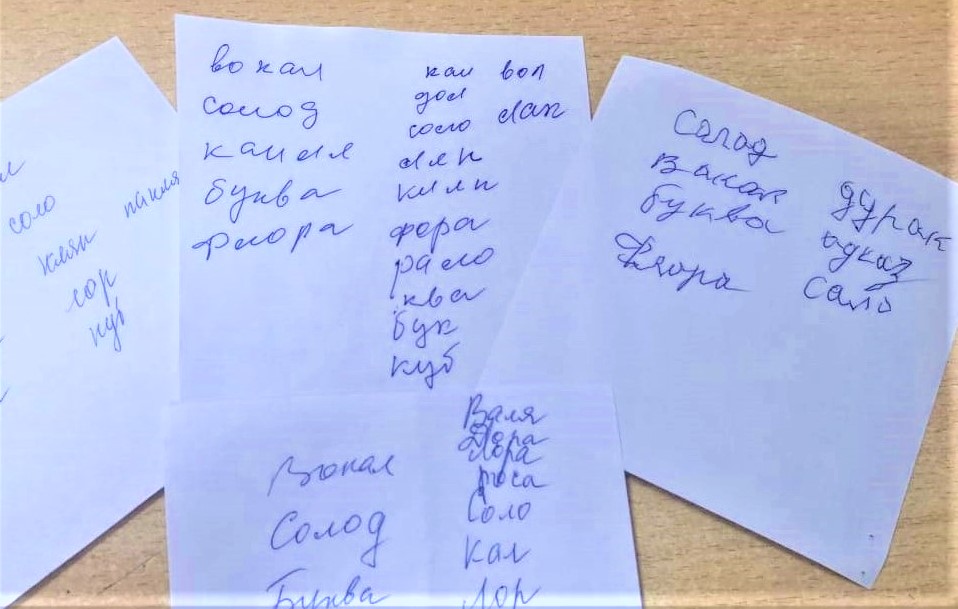 соло
пакля
клян
лор
куб
вокал
солод
капля
буква
флора
кал вол
дол
соло лак
ляп
кляп
фора
рало
ква
бук
куб
Солод
Вокал
буква
Флора
дурак
одказ
Сало
Вокал
Солод
Буква
Валя
Дора
Лора
роса
Соло
Кал
Лор